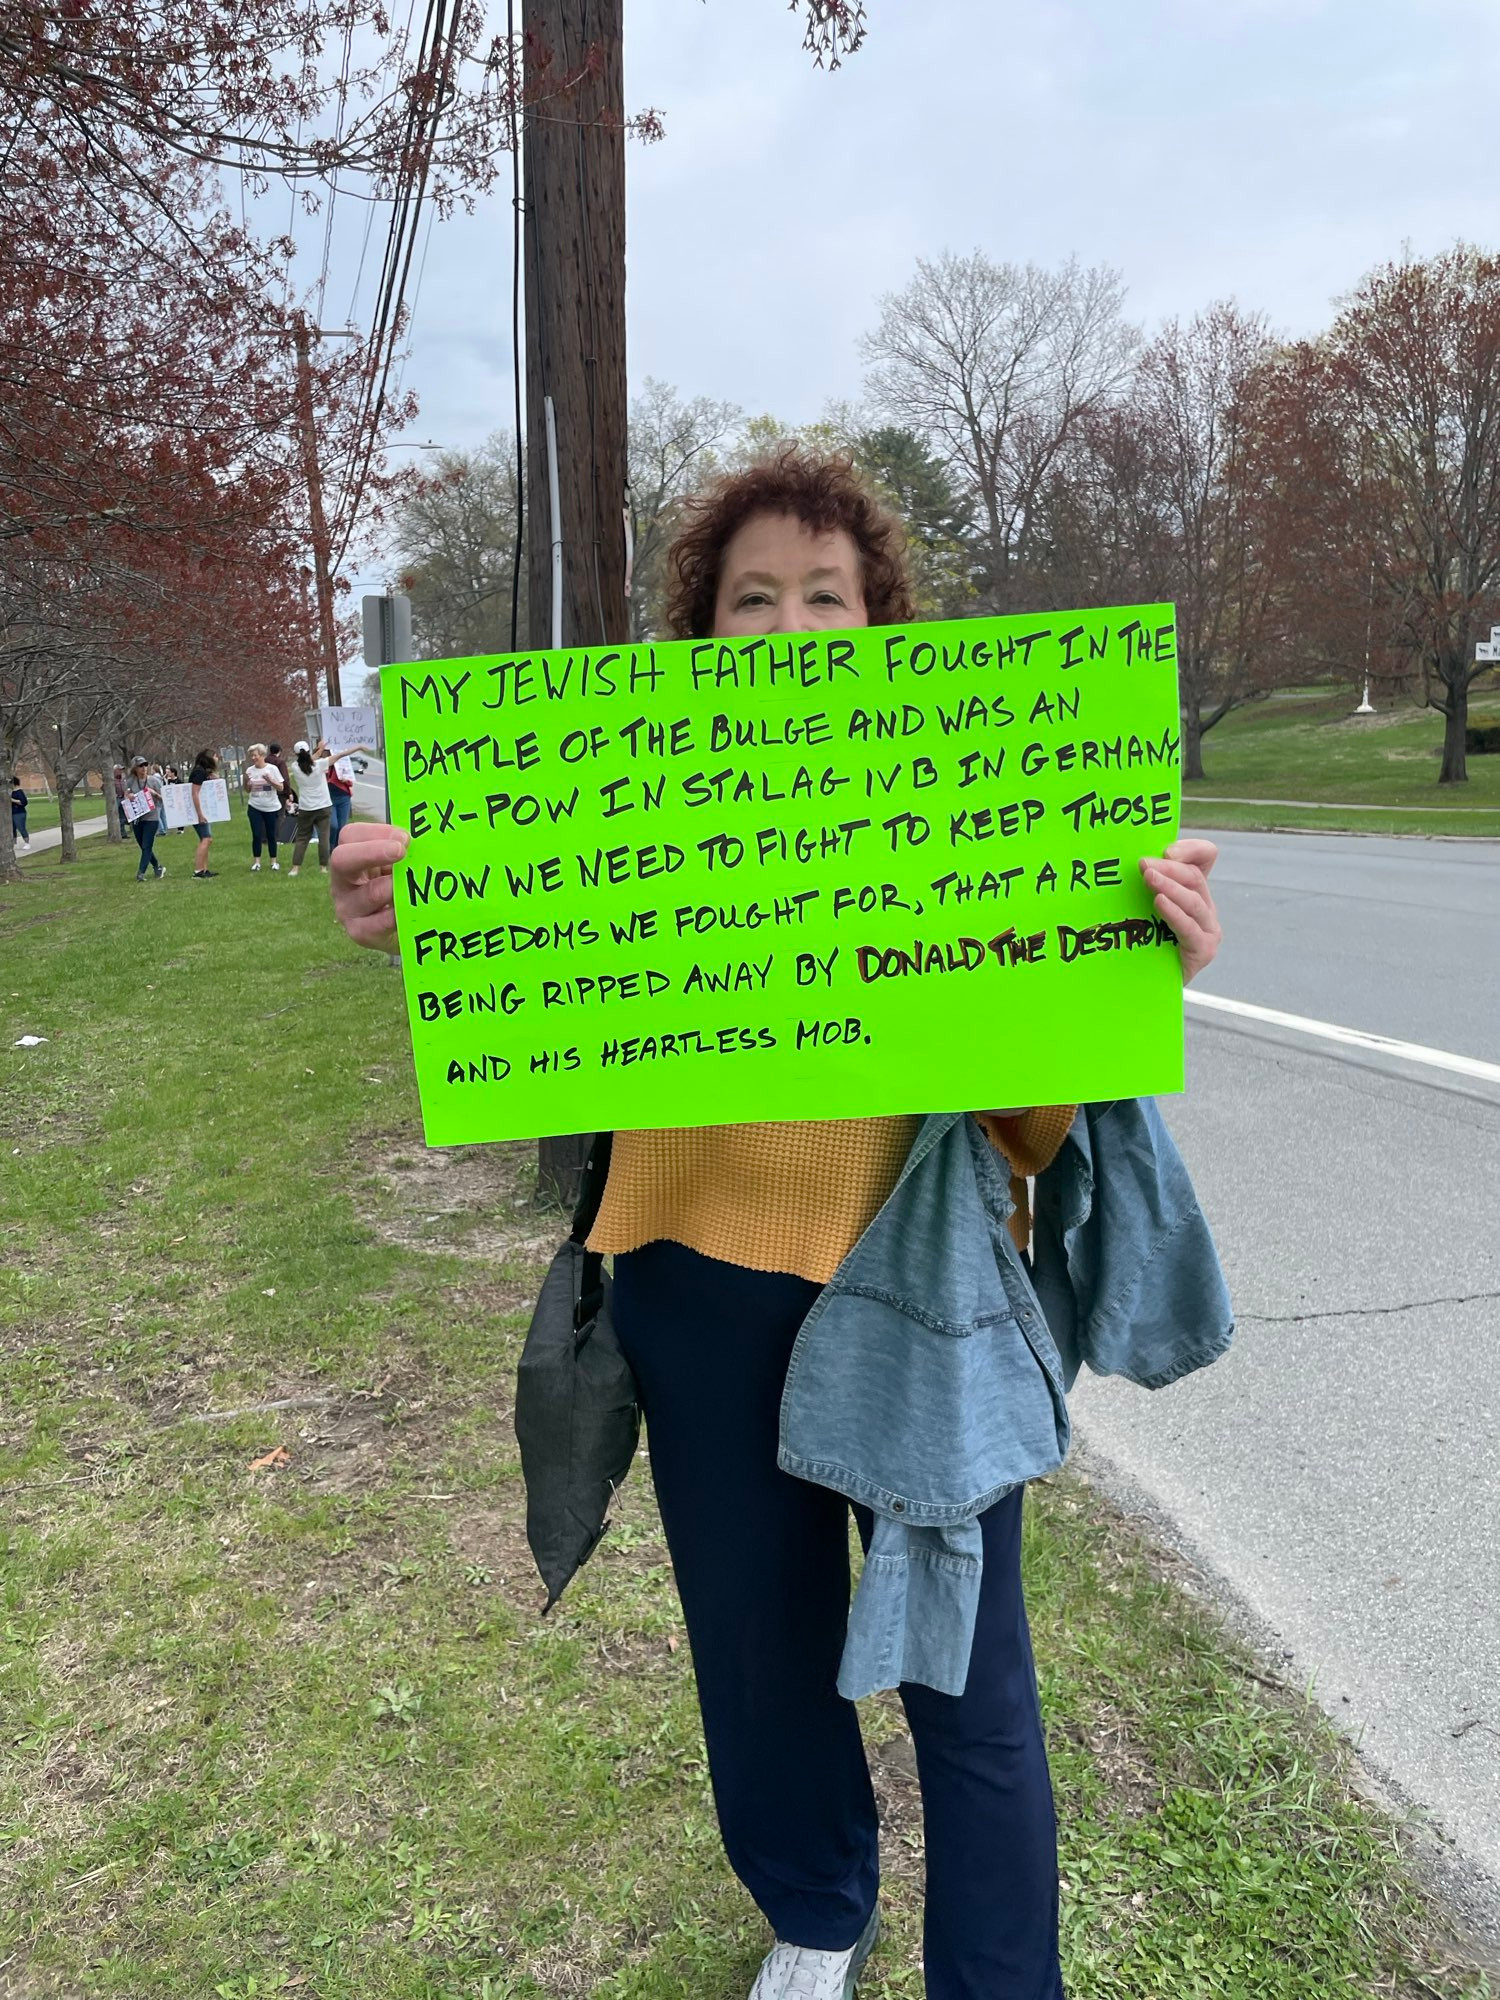 MY JEWISH FATHER FOUGHT IN THE
BATTLE OF THE BULGE AND WAS AN
EX-POW IN STALAG IVB IN GERMANY.
NOW WE NEED TO FIGHT TO KEEP THOSE
FREEDOMS WE FOUGHT FOR, THAT ARE
BEING RIPPED AWAY BY DONALD THE DESTROYER
AND HIS HEARTLESS MOB.
NO TO
CECOT
EL SALVADOR